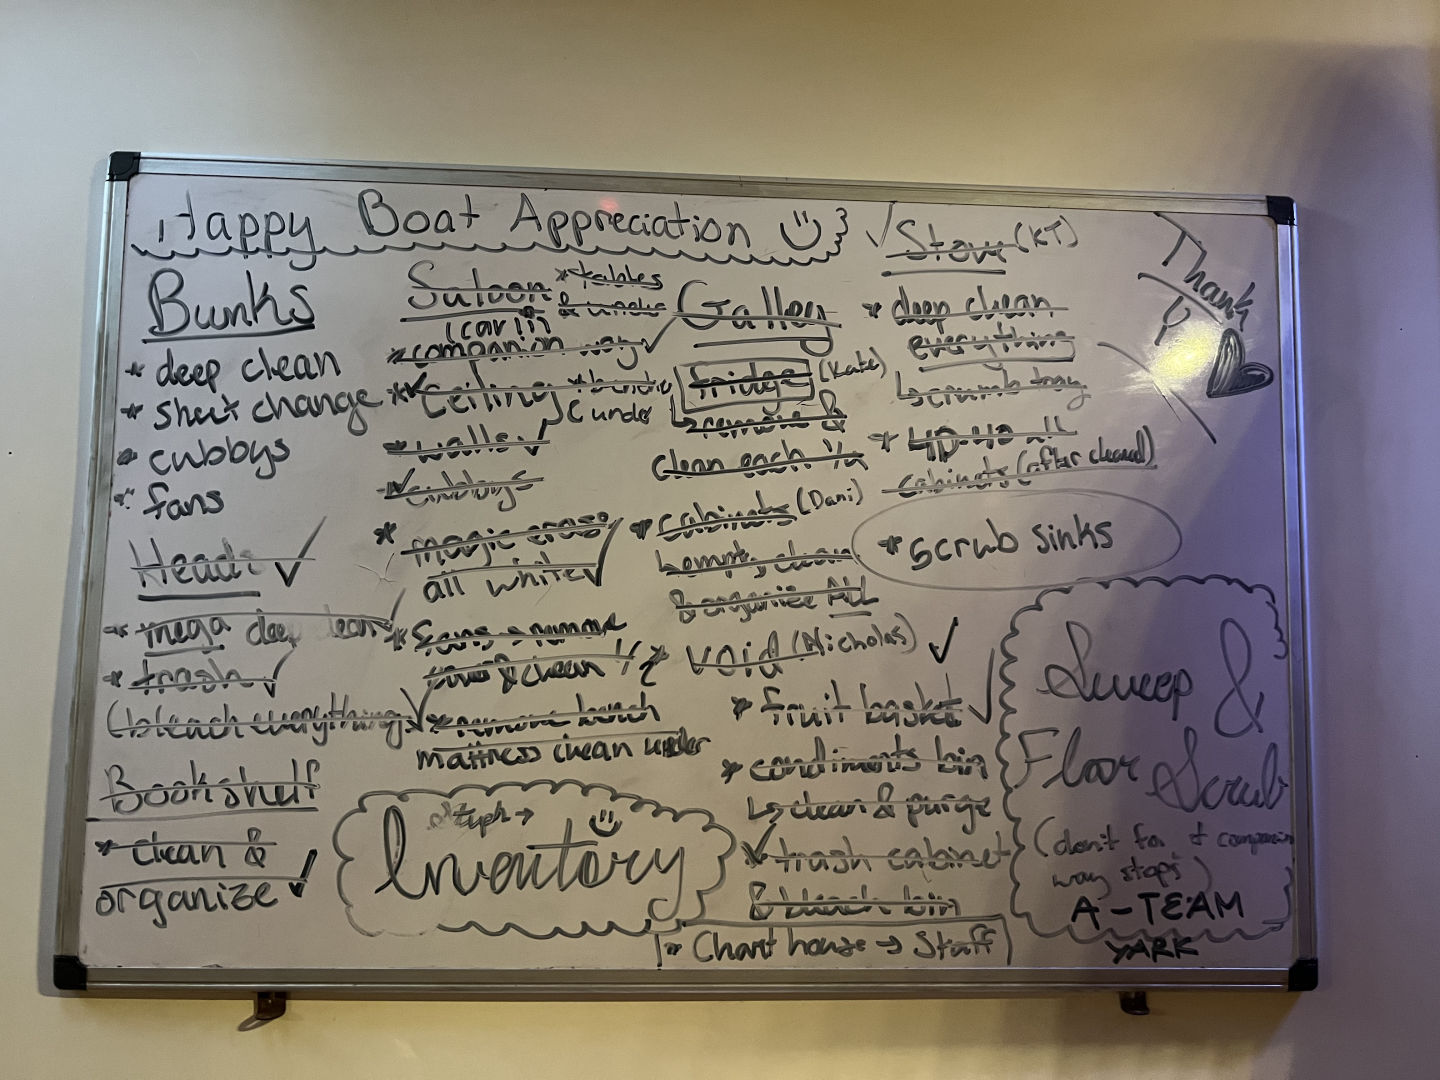 Happy Boat Appreciation
Bunks
* deep clean
* sheet change
* cubbys
* fans
Heads ✓
* mega deep clean
* trash ✓
bleach everything ✓
Bookshelf
* clean &
organize ✓
Saloon
* tables
& under
(Carli)
* companion way ✓
* ceiling
under
* walls ✓
✓ cubbys
* magic erase
all white ✓
* fans → remove
& clean
* remove bench
mattress clean under
Steph →
Inventory
Galley
fridge (Kate)
↳ remove &
clean each
* cabinets (Dani)
empty, clean
& organize ALL
* void (Nicholas) ✓
* fruit basket ✓
* condiments bin
↳ clean & purge
✓ trash cabinet
& bleach bin
* Chart house → Staff
✓ Stove (KT)
* deep clean
everything
↳ crumb tray
* WD-40 all
cabinets (after cleaned)
* scrub sinks
Thank
Sweep &
Floor Scrub
(don't for companion
way steps)
A-TEAM
YARK